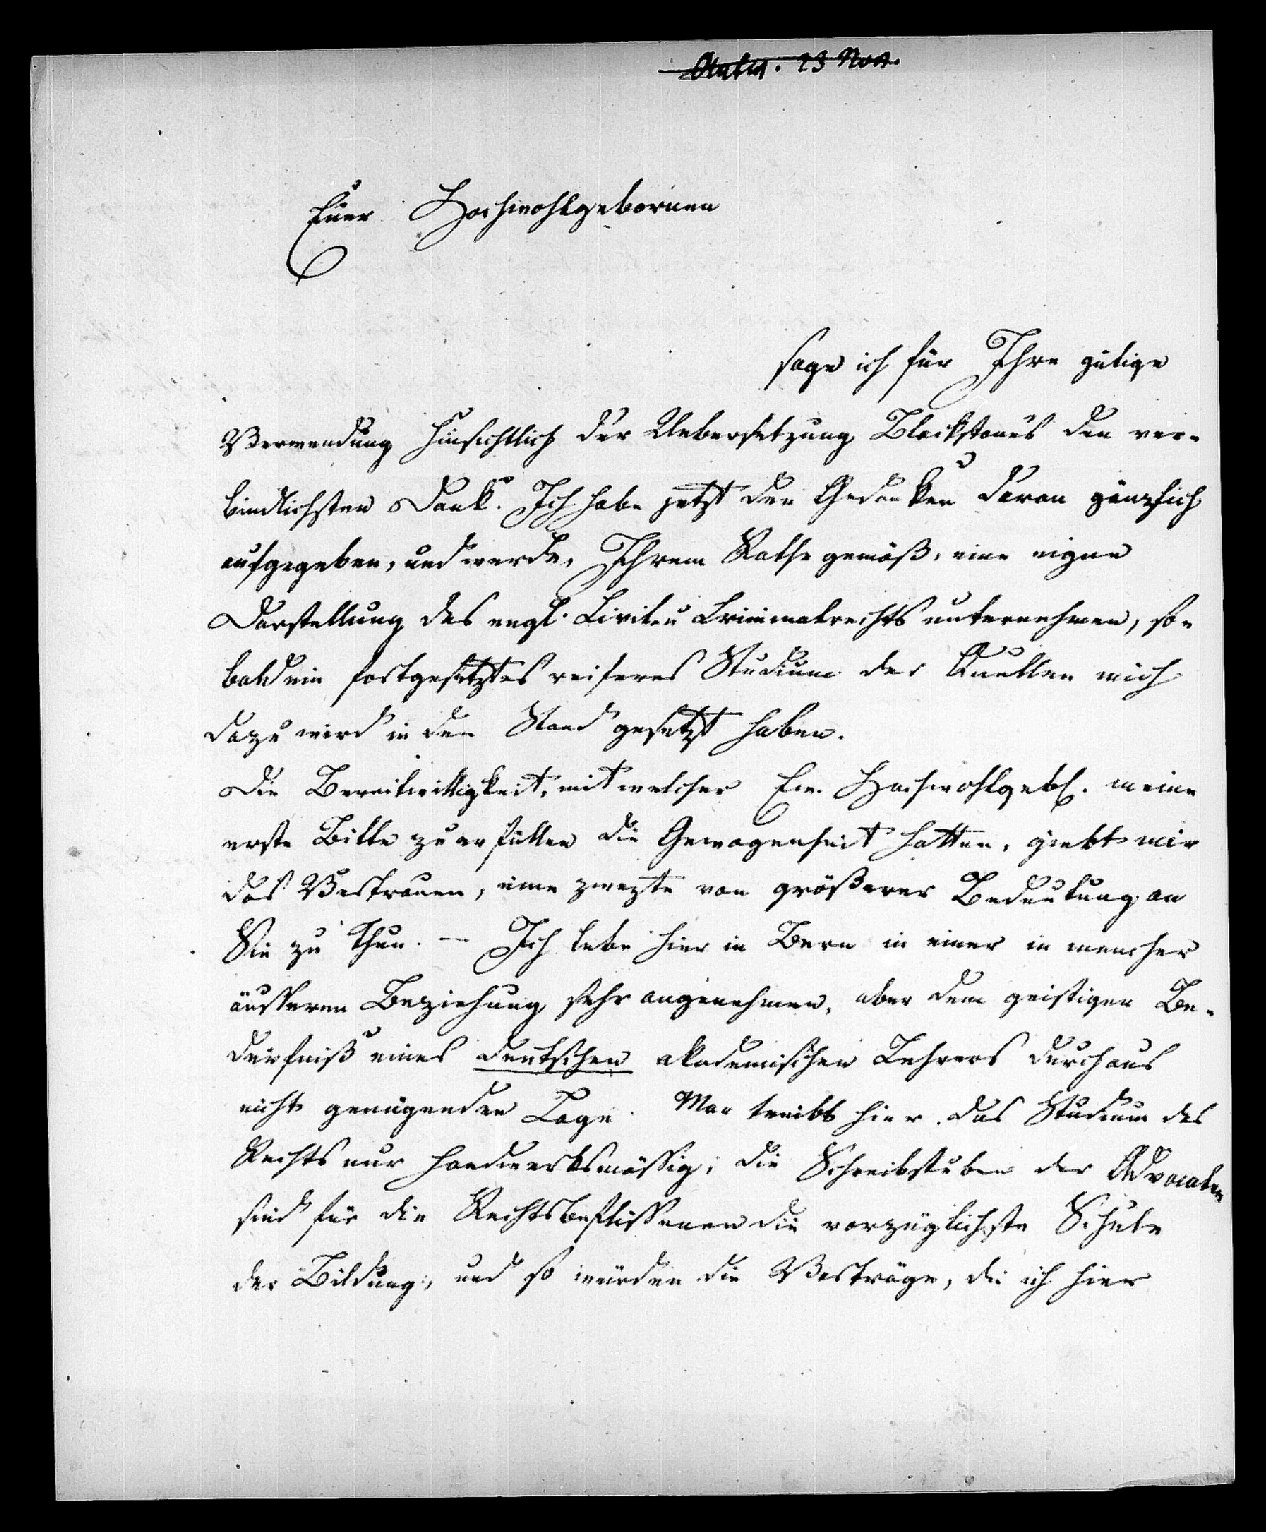 Antw. 23 Nov.
Euer Hochwohlgebornen
sage ich für Ihre gütige
Verwendung hinsichtlich der Uebersetzung Blackstone's den ver-
bindlichsten Dank. Ich habe jetzt den Gedanken daran gänzlich
aufgegeben, und werde, Ihrem Rathe gemäß, eine eigne
Darstellung des engl. Civil u Criminalrechts unternehmen, so-
bald ein fortgesetztes reiferes Studium der Quellen mich
dazu wird in den Stand gesetzt haben.
Die Bereitwilligkeit, mit welcher Ew. Hochwohlgeb. meine
erste Bitte zu erfüllen die Gewogenheit hatten, giebt mir
das Vertrauen, eine zweyte von größerer Bedeutung an
Sie zu thun. – Ich lebe hier in Bern in einer in mancher
äusseren Beziehung sehr angenehmen, aber dem geistigen Be-
dürfniß eines deutschen akademischen Lehrers durchaus
nicht genügenden Lage. Man treibt hier das Studium des
Rechts nur handwerksmässig; die Schreibstuben der Advocaten
sind für die Rechtsbeflissenen die vorzüglichste Schule
der Bildung, und so würden die Vorträge, die ich hier